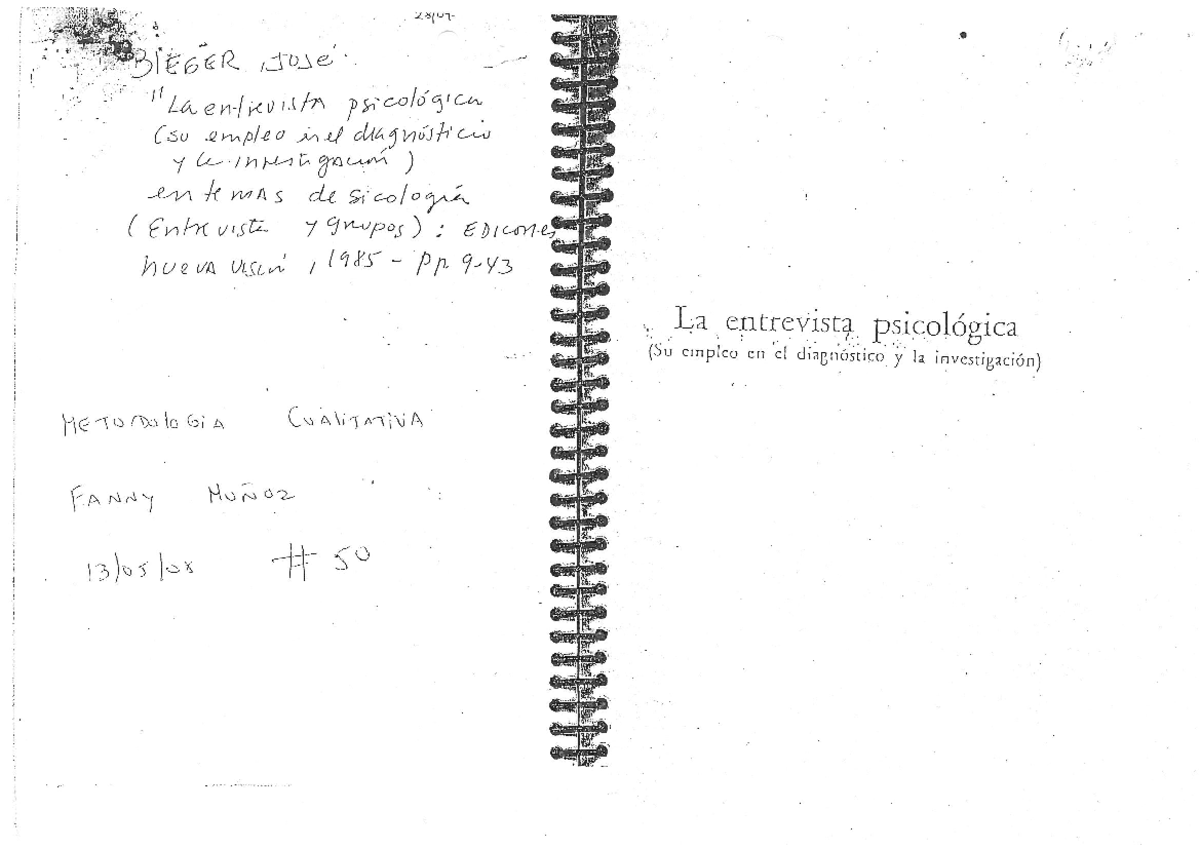 28/04.
BIEGER, JOSÉ.
"La entrevista psicológica
(su empleo en el diagnósticio
y la investigación)
en temas de sicología
(Entrevista y grupos): EDICONES
NUEVA VISIÓN, 1985 - pp 9-43
METODOLOGIA CUALITATIVA
FANNY MUÑOZ
13/05/08 # 50
La entrevista psicológica
(Su empleo en el diagnóstico y la investigación)